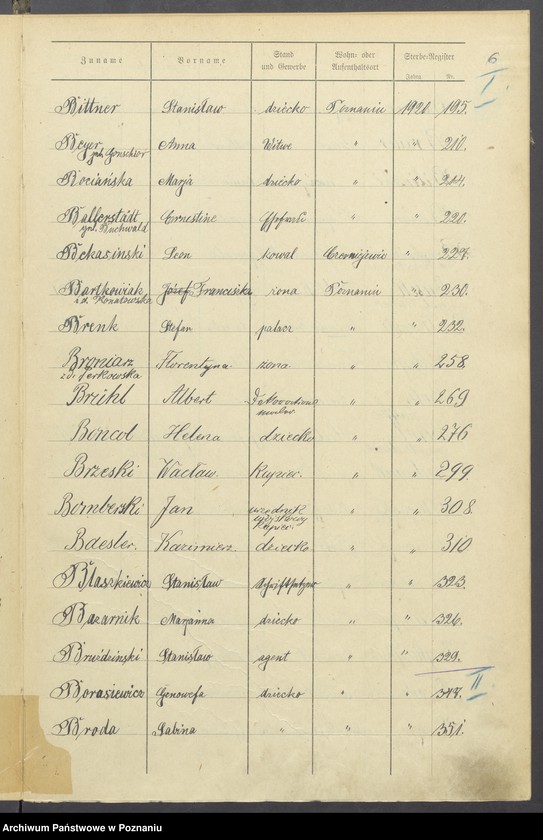 6
Zuname Vorname Stand und Gewerbe Wohn- oder Aufenthaltsort Sterbe-Register
Jahrg. Nr.
I
Bittner Stanisław dziecko Poznaniu 1920 195.
Beyer, Anna Witwe " " 210.
Kociańska Marja dziecko " " 214.
Balferstädt Ernestine " " 220.
geb. Buchwald
Bekasinski Leon kowal " 227.
Bartkowiak Józef Franciszka żona Poznaniu " 230.
Brenk Stefan palacz " " 232.
Broniarz Florentyna żona " " 258.
Brühl Albert " " 269
Boncol Helena dziecko " " 276
Brzeski Wacław Kupiec " " 299.
Bomberski Jan urzędnik " " 308.
Baesler Kazimierz dziecko " " 310
Błaszkiewicz Stanisław Schriftsetzer " " 323.
Bazarnik Marjanna dziecko " " 326.
Bruździnski Stanisław agent " " 329.
II
Borasiewicz Genowefa dziecko " " 347.
Broda Sabina " " " 351.
Archiwum Państwowe w Poznaniu